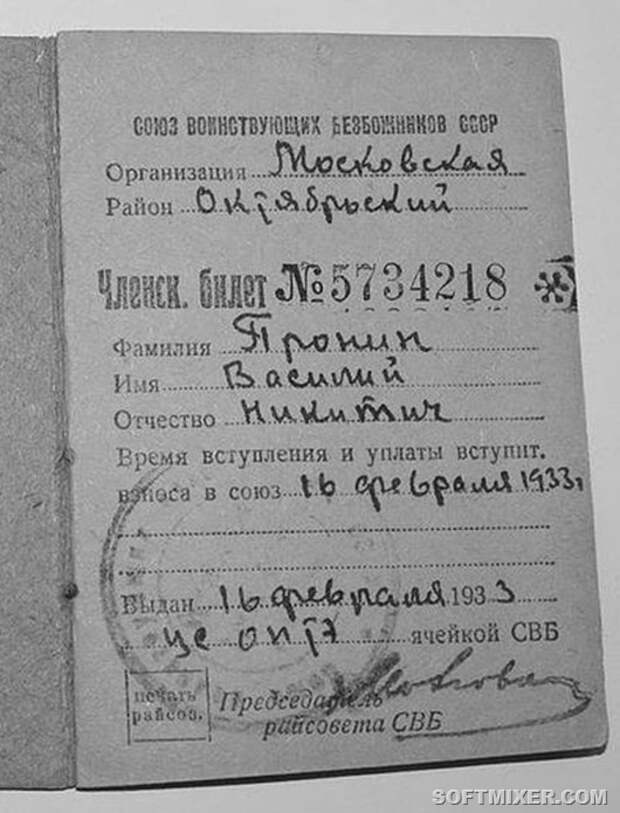 СОЮЗ ВОИНСТВУЮЩИХ БЕЗБОЖНИКОВ СССР
Организация Московская
Район Октябрьский
Членск. билет №5734218
Фамилия Пронин
Имя Василий
Отчество Никитич
Время вступления и уплаты вступит.
взноса в союз 16 февраля 1933 г
Выдан 16 февраля 1933
ячейкой СВБ
печать
райсов.
Председатель
райсовета СВБ
SOFTMIXER.COM